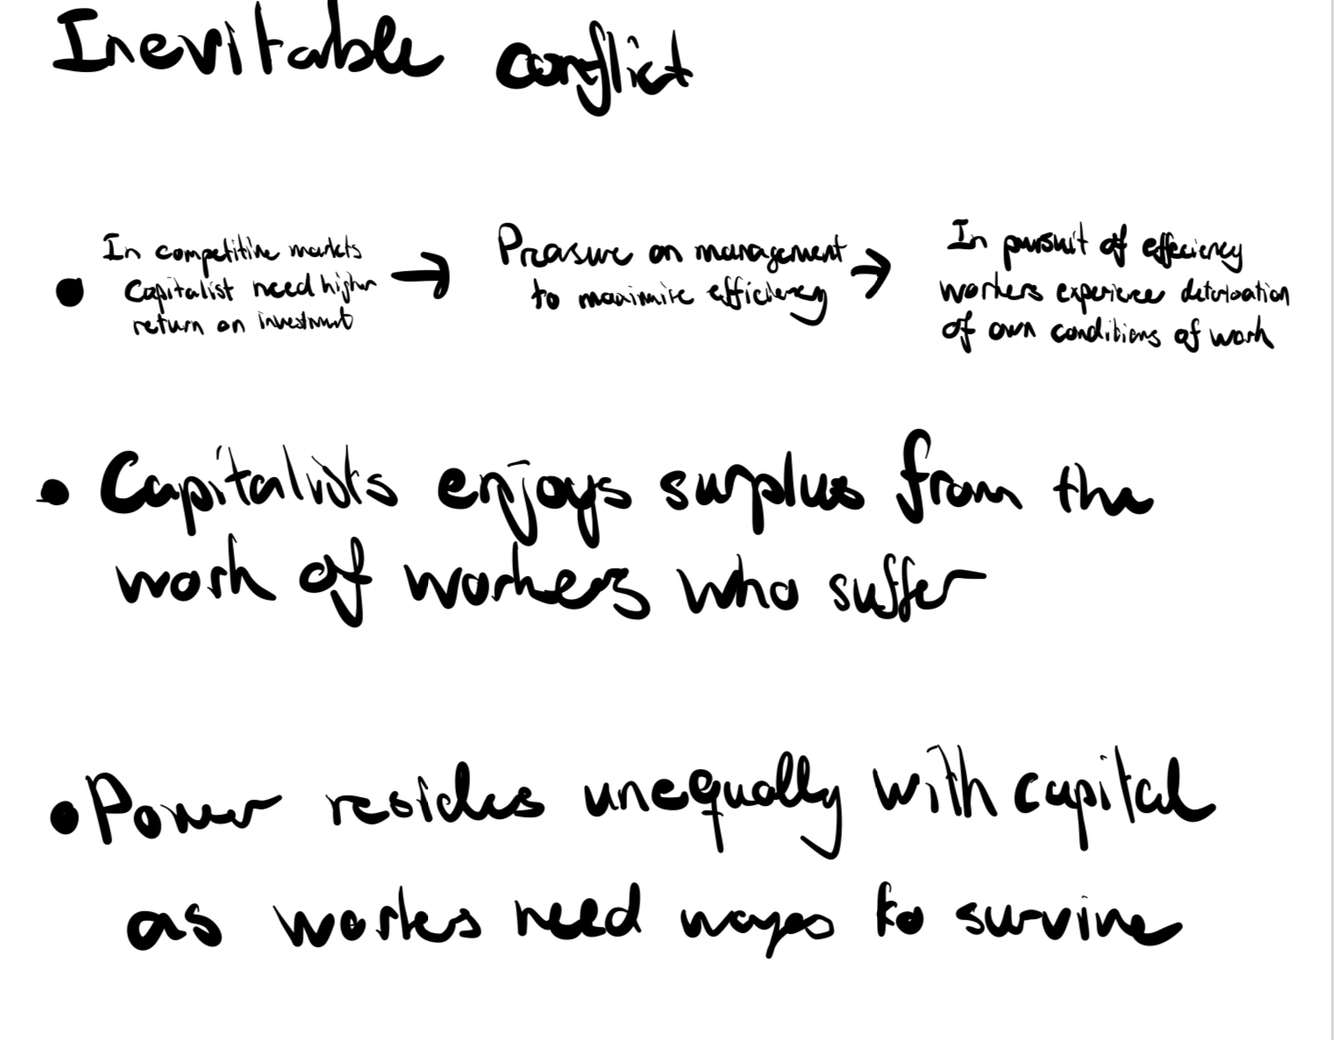 Inevitable conflict
In competitive markets
Capitalist need higher
return on investment
→
Preasure on management
to maximise efficiency
→
In pursuit of effeciency
workers experience deterioation
of own conditions of work
• Capitalists enjoys surplus from the
work of workers who suffer
• Power resides unequally with capital
as workes need wages to survive